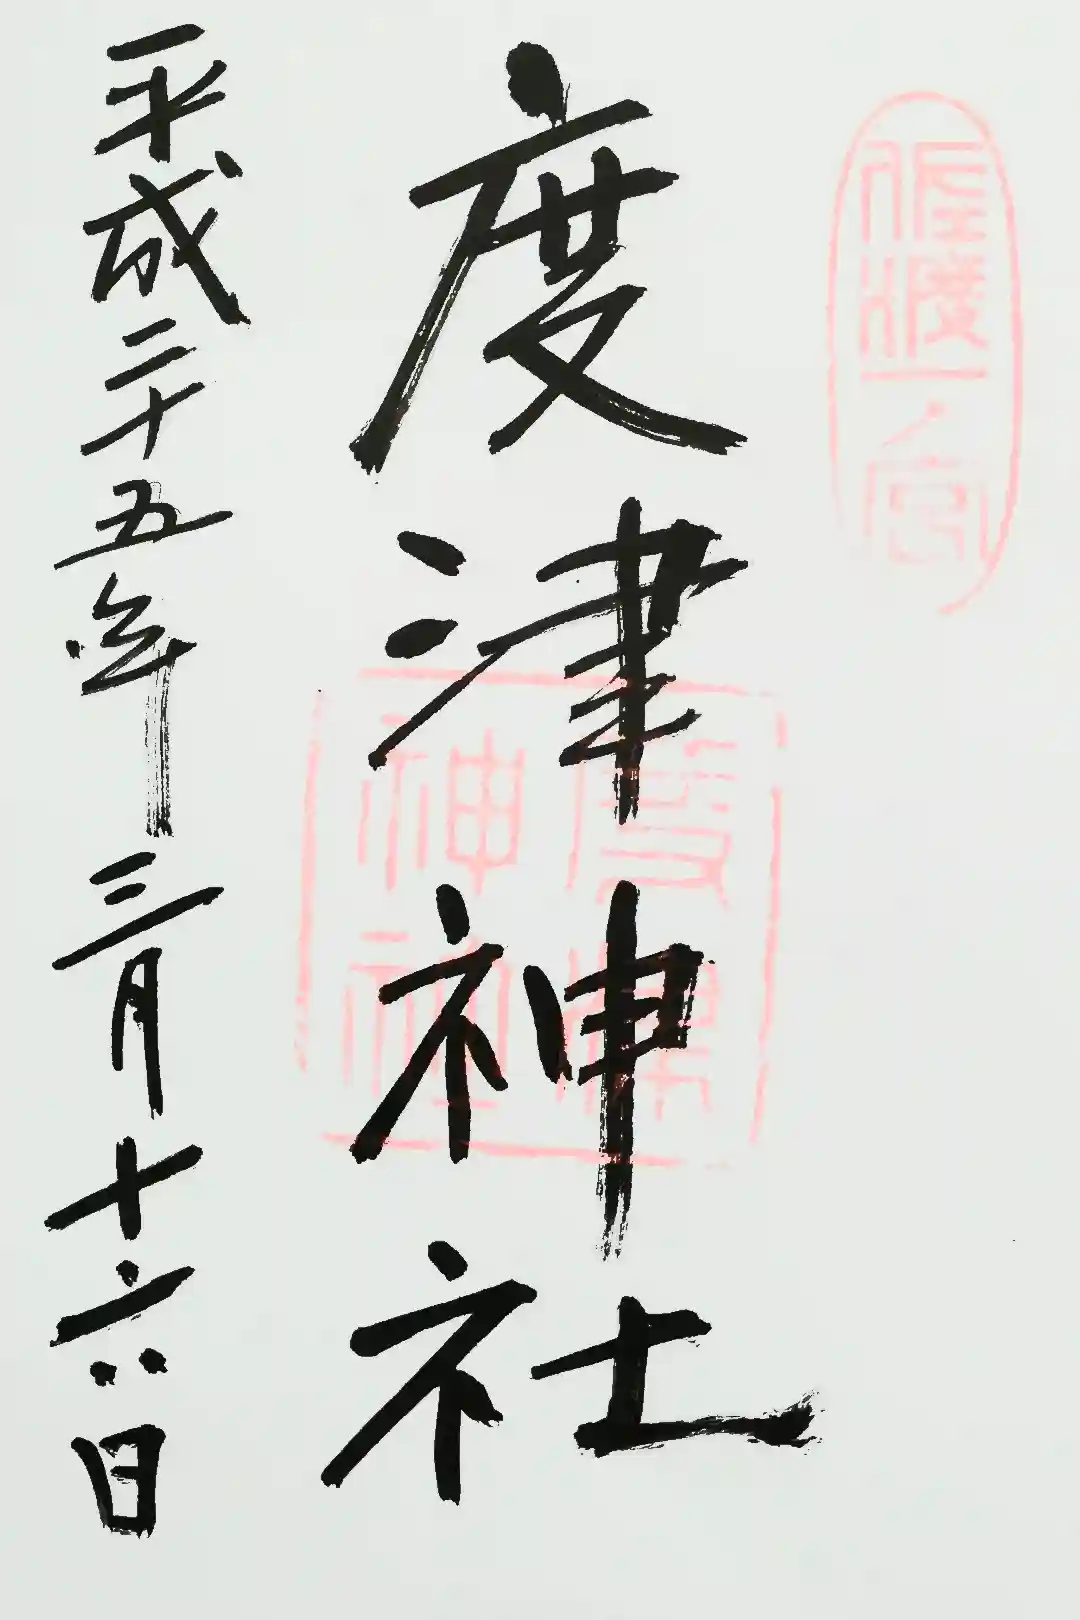 佐渡一ノ宮
度津神社
度津神社
平成二十五年三月十六日